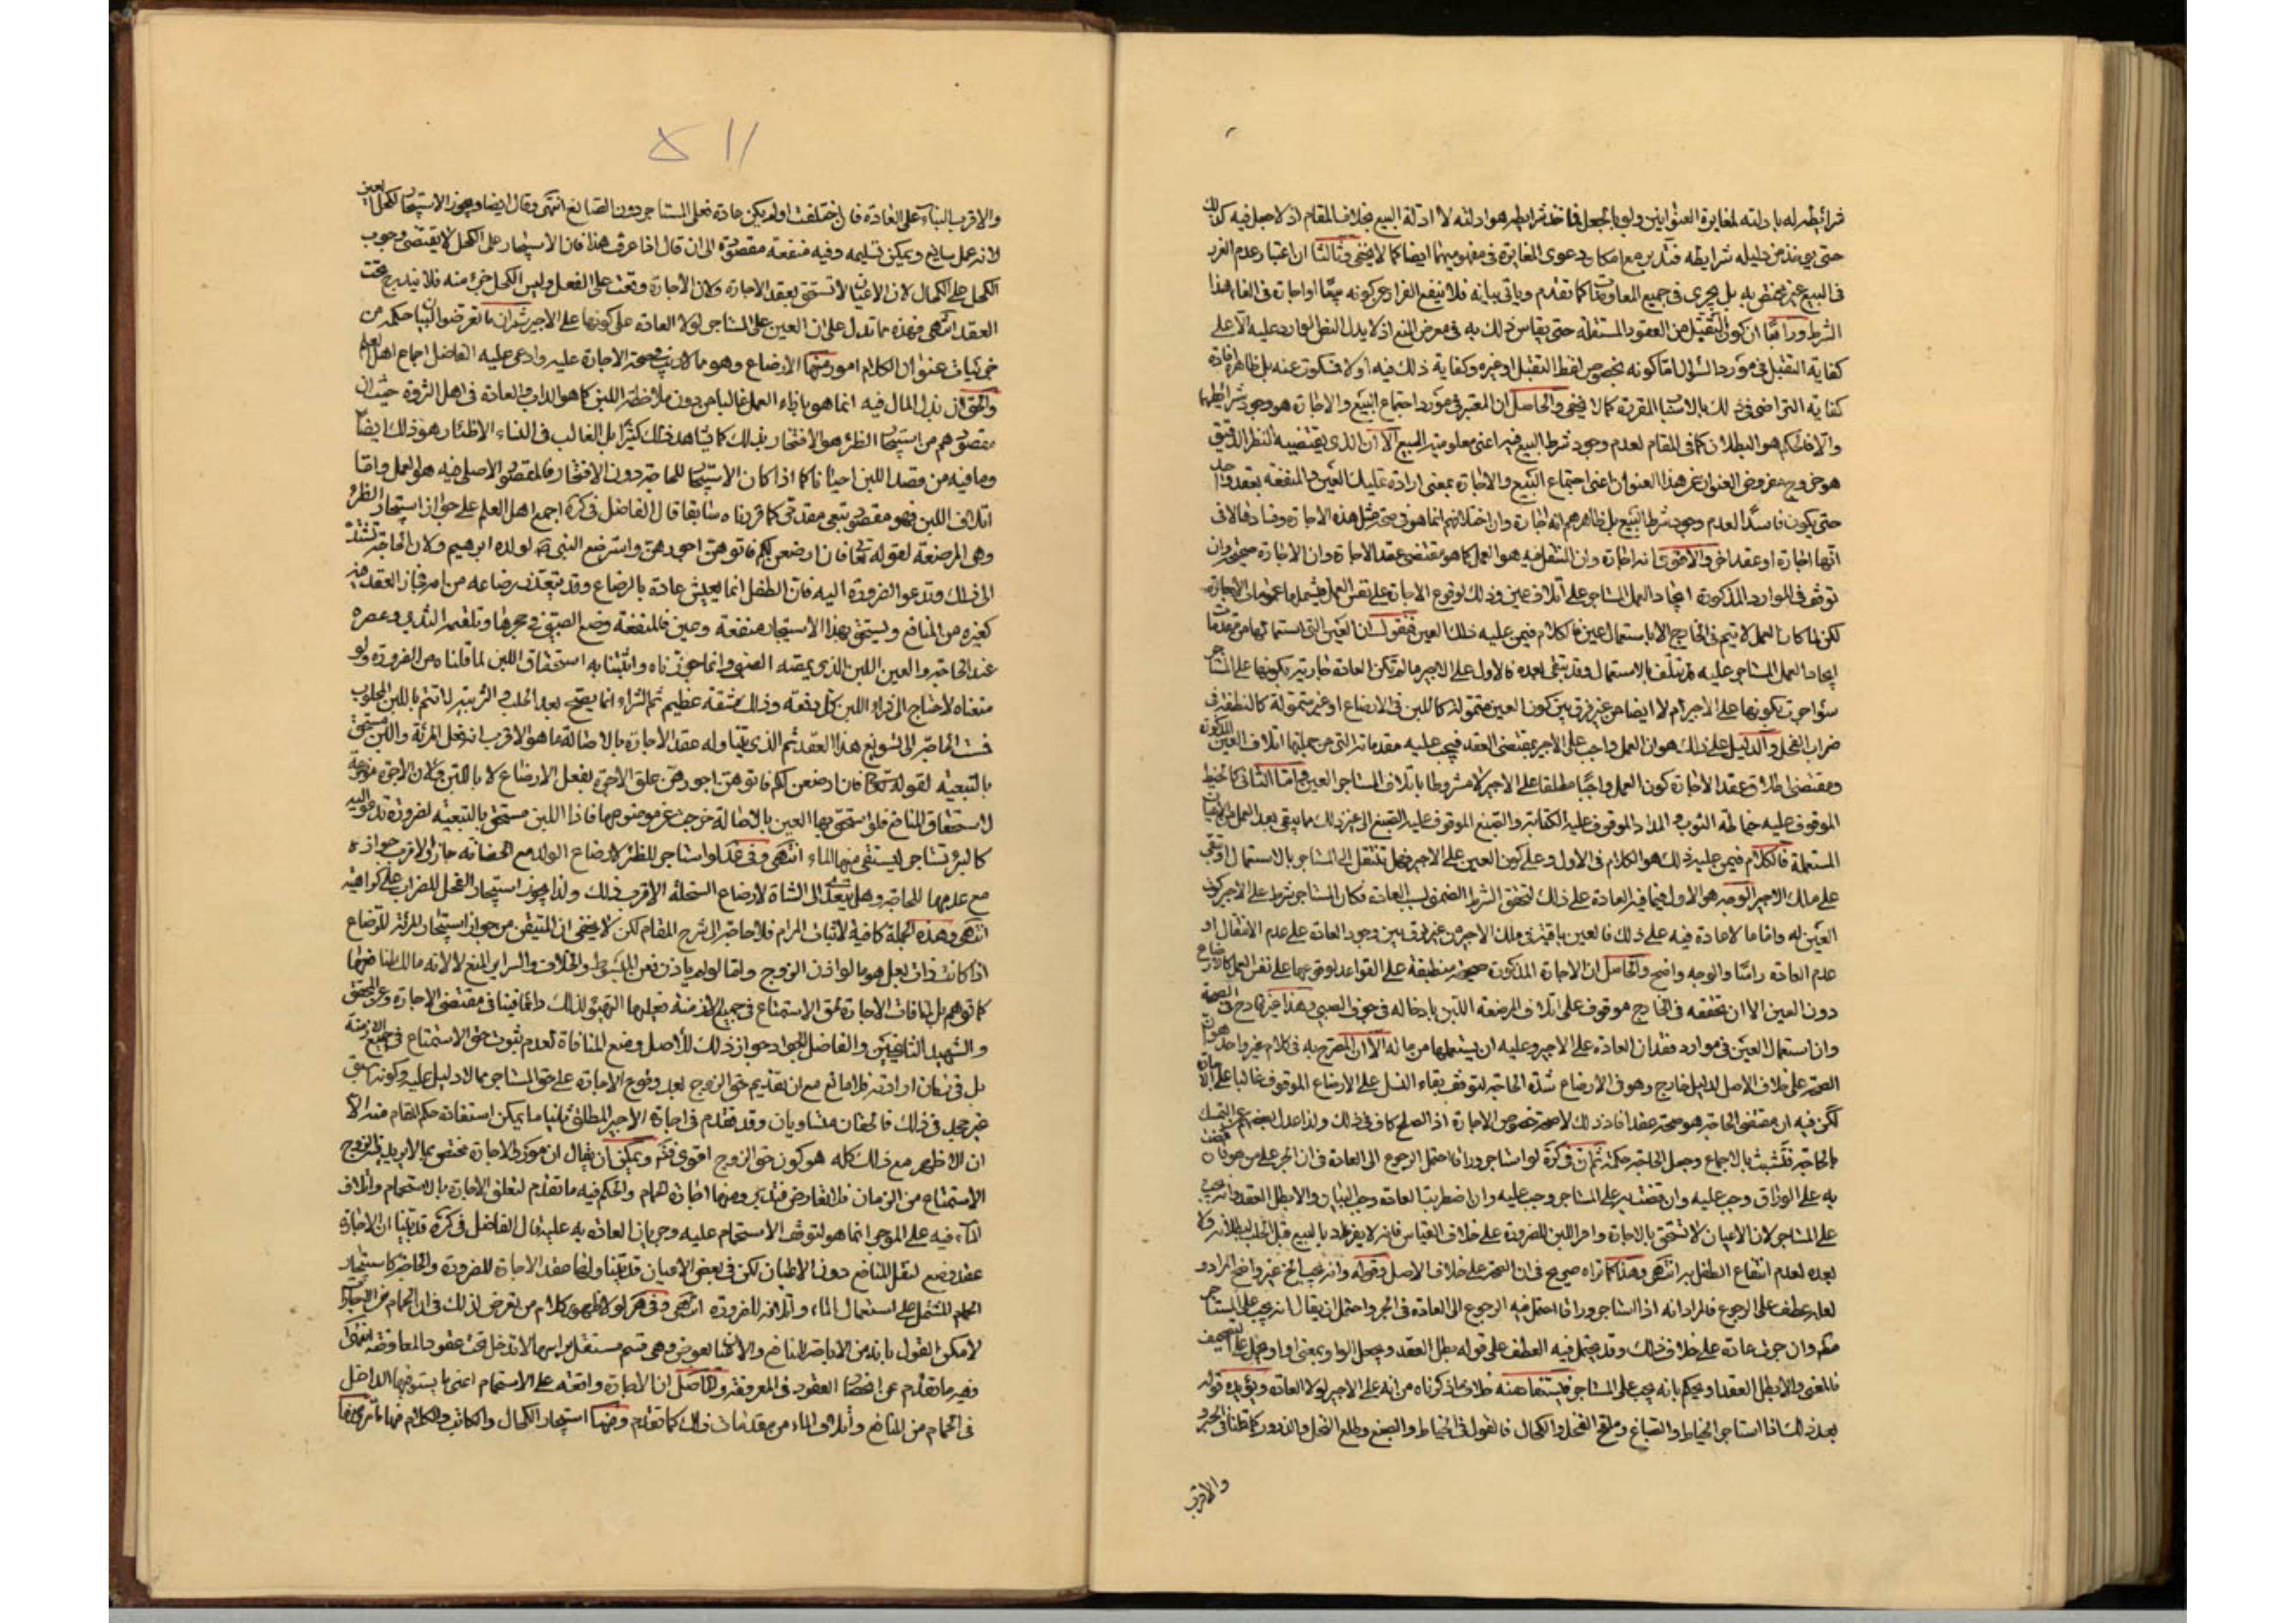 شرائطه له بادلته لمغايرة العنوانين ولو بالجعل فما خذ شرايطه هو ادلته لا ادلة البيع بخلاف المقام اذ لا جعل فيه كذلك
حتى يؤخذ من دليله شرايطه فتدبر مع امكان دعوى المغايرة في مفهوميهما ايضا كما لا يخفى وثالثا ان اعتبار عدم الغرر
في البيع غير مختص به بل يجرى في جميع المعاوضات كما تقدم وياتي بيانه فلا ينفع الفرار عن كونه بيعا او اجارة في الغاء هذا
الشرط ورابعا ان كون التقبيل من العقود المستقلة حتى يقاس ذلك به في معرض المنع اذ لا يدل النظر الوارد عليه الا على
كفاية التقبل في مورد السؤال اما كونه بخصوص لفظ التقبل او غيره وكفاية ذلك فيه او لا فسكوت عنه بل ظاهره افادة
كفاية التراضي في ذلك بالاسباب المقررة كما لا يخفى والحاصل ان المعتبر في مورد اجتماع البيع والاجارة هو وجود شرايطهما
والا فالحكم هو البطلان كما في المقام لعدم وجود شرط البيع فيه اعنى معلومية المبيع الا ان الذي يقتضيه النظر الدقيق
هو خروج مفروض العنوان عن هذا العنوان اعنى اجتماع البيع والاجارة بمعنى ارادة تمليك العين والمنفعة بعقد واحد
حتى يكون فاسدا لعدم وجود شرط البيع بل ظاهرهم انه اجارة وان اختلافهم انما هو في صحة مثل هذه الاجارة وفسادها لا في
انها اجارة او عقد اخر والاقوى انه اجارة وان المنتقل فيه هو العمل كما هو مقتضى عقد الاجارة وان الاجارة صحيحة وان
توقف في الموارد المذكورة ايجاد العمل للمستاجر على اتلاف عين وذلك لوقوع الاجارة على نفس العمل فيشملها عمومات الاجارة
لكن لما كان العمل لا يتم في الخارج الا باستعمال عين فالكلام فيمن عليه ذلك العين فنقول ان العين التي استعمالها من مقدمات
ايجاد العمل المستاجر عليه قد يتلف بالاستعمال وقد يبقى بعده فالاول على الاجير ما لم تكن العادة جارية بكونها على المستاجر
سواء جرت بكونها على الاجير ام لا ايضا من غير فرق بين كون العين متمولة كاللبن في الارضاع او غير متمولة كالنطفة في
ضراب الفحل والدليل على ذلك هو ان العمل واجب على الاجير بمقتضى العقد فيجب عليه مقدماته التي من جملتها اتلاف العين المذكورة
ومقتضى اطلاق عقد الاجارة كون العمل واجبا مطلقا على الاجير لا مشروطا باتلاف المستاجر العين واما الثاني كالخيط
الموقوف عليه خياطة الثوب والمداد الموقوف عليه الكتابة والصبغ الموقوف عليه الصبغ الى غير ذلك مما يبقى بعد العمل من الاعيان
المستعملة فالكلام فيمن عليه ذلك هو الكلام في الاول وعلى كون العين على الاجير فهل تنتقل الى المستاجر بالاستعمال او تبقى
على ملك الاجير الوجه هو الاول فيما فيه العادة على ذلك لتحقق الشرط الضمنى لسبب العادة فكان المستاجر شرط على الاجير كون
العين له واما ما لا عادة فيه على ذلك فالعين باقية في ملك الاجير من غير فرق بين وجود العادة على عدم الانتقال او
عدم العادة راسا والوجه واضح والحاصل ان الاجارة المذكورة صحيحة منطبقة على القواعد لوقوعها على نفس العمل كالارضاع
دون العين الا ان تحققه في الخارج موقوف على اتلاف المرضعة اللبن بادخاله في جوف الصبي وهذا غير قادح في الصحة
وان استعمال العين في موارد فقدان العادة على الاجير وعليه ان يستعملها من ماله الا ان المصرح به في كلام غير واحد هو ان
الصحة على خلاف الاصل لدليل خارج وهو في الارضاع شدة الحاجة لتوقف بقاء النسل على الارضاع الموقوف غالبا على الاجارة
لكن فيه ان مقتضى الحاجة هو صحة عقد افاد ذلك لا صحة خصوص الاجارة اذ الصلح كاف في ذلك ولذا عدل بعضهم عن التمسك
بالحاجة فتشبث بالاجماع وجعل الحاجة حكمة ثم ان في كرة لو استاجر وراقا احتمل الرجوع الى العادة فان الحبر على من هو فان قضت
به على الوراق وجب عليه وان قضت به على المستاجر وجب عليه وان اضطربت العادة وجب البيان والا بطل العقد وانه يجب
على المستاجر لان الاعيان لا تستحق بالاجارة وامر اللبن للضرورة على خلاف القياس فانه لا يفرد بالبيع قبل الحلب ولا
بعده لعدم انتفاع الطفل به انتهى وهذا كما تراه صريح في ان الصحة على خلاف الاصل وقوله وانه يجب الخ غير واضح المراد و
لعله عطف على الرجوع فالمراد انه اذا استاجر وراقا احتمل فيه الرجوع الى العادة في الحبر واحتمل ان يقال انه يجب على المستاجر
وان جرت عادة على خلاف ذلك وقد يحتمل فيه العطف على قوله بطل العقد ويجعل الواو بمعنى او او يحمل على التصحيف
فالمعنى والا بطل العقد او يحكم بانه يجب على المستاجر فيستفاد منه خلاف ما ذكرناه من انه على الاجير لولا العادة ويؤيده قوله
بعد ذلك اذا استاجر الخياط والصباغ وملقح الفحل والكحال فالقول في الخياط والصبغ وطلع النخل والذرور كما قلنا في الحبر و
والاقرب
والاقرب البناء على العادة فان اختلفت او لم يكن عادة فعلى المستاجر دون الصانع انتهى وقال ايضا ويجوز الاستيجار لكحل العين
لانه عمل سائغ ويمكن تسليمه وفيه منفعة مقصودة الى ان قال اذا عرفت هذا فان الاستيجار على الكحل لا يقتضى وجوب
الكحل على الكحال لان الاعيان لا تستحق بعقد الاجارة ولان الاجارة وقعت على الفعل وليس الكحل جزء منه فلا يندرج تحت
العقد انتهى فهذه مما تدل على ان العين على المستاجر لولا العادة على كونها على الاجير ثم ان ما تعرضوا لبيان حكمه من
جزئيات عنوان الكلام امور منها الارضاع وهو مما لا ريب في صحة الاجارة عليه وادعى عليه الفاضل اجماع اهل العلم
والحق ان بذل المال فيه انما هو بازاء العمل غالبا من دون ملاحظة اللبن كما هو الداب والعادة في اهل الثروة حيث ان
مقصودهم من استيجار الظئر هو الافتخار بذلك كما يشاهد ذلك كثيرا بل الغالب في النساء الاظئار هو ذلك ايضا
وما فيه من قصد اللبن احيانا كما اذا كان الاستيجار للحاجة دون الافتخار فالمقصود الاصلى فيه هو العمل واما
اتلاف اللبن فهو مقصود تبعى مقدمى كما قررناه سابقا قال الفاضل في كرة اجمع اهل العلم على جواز استيجار الظئر
وهي المرضعة لقوله تعالى فان ارضعن لكم فاتوهن اجورهن واسترضع النبي ص لولده ابرهيم ولان الحاجة تشتد
الى ذلك وتدعو الضرورة اليه فان الطفل انما يعيش عادة بالرضاع وقد يتعذر رضاعه من امه فجاز العقد عليه
كغيره من المنافع ويستحق بهذا الاستيجار منفعة وعين فالمنفعة وضع الصبي في حجرها وتلقيمه الثدي وعصره
عند الحاجة والعين اللبن الذي يمصه الصبي وانما جوزناه واثبتنا به استحقاق اللبن لما قلناه من الضرورة ولو
منعناه لاحتاج الى شراء اللبن كل دفعة وذلك مشقة عظيم ثم الشراء انما يصح بعد الحلب والتربية لا تتم باللبن المحلوب
فمست الحاجة الى تسويغ هذا العقد ثم الذي يتناوله عقد الاجارة بالاصالة ما هو الاقرب انه فعل المرئة واللبن مستحق
بالتبعية لقوله تعالى فان ارضعن لكم فاتوهن اجورهن علق الاجرة بفعل الارضاع لا باللبن ولان الاجرة موضوعة
لاستحقاق المنافع فلو استحق بها العين بالاصالة خرجت عن موضوعها فاذا اللبن مستحق بالتبعية لضرورة تدعو اليه
كالبئر تستاجر ليستقى منها الماء انتهى وفي عد لو استاجر للظئر لارضاع الولد مع الحضانة جاز والاقرب جوازه
مع عدمها للحاجة وهل يتعدى الى الشاة لارضاع السخلة الاقرب ذلك ولذا يجوز استيجار الفحل للضراب على كراهية
انتهى وهذه الجملة كافية لاثبات المرام فلا حاجة الى شرح المقام لكن لا يخفى ان المتيقن من جواز استيجار المرئة للرضاع
اذا كانت ذات بعل هو ما لو اذن الزوج واما لو لم ياذن فعن المبسوط والخلاف والسرائر المنع لا لانه مالك لمنافعها
كما توهم بل لمنافات الاجارة لحق الاستمتاع في جميع الازمنة فعليها التهيؤ لذلك دائما فينافي مقتضى الاجارة وعن المحقق
والشهيد الثانيين والفاضل الجواد جواز ذلك للأصل ومنع المنافاة لعدم ثبوت حق الاستمتاع في جميع الازمنة
بل في زمان ارادته فلا مانع مع ان تقديم حق الزوج بعد وقوع الاجارة على حق المستاجر مما لا دليل عليه وكونه اسبق
غير مجد في ذلك فالحقان متساويان وقد تقدم في اجارة الاجير المطلق ثانيا ما يمكن استفادة حكم المقام منه الا
ان الاظهر مع ذلك كله هو كون حق الزوج اقوى فتم ويمكن ان يقال ان مورد الاجارة مختص بما لا يريد الزوج
الاستمتاع من الزمان فلا تعارض فتدبر ومنها اجارة الحمام والحكم فيه ما تقدم لتعلق الاجارة بالاستحمام واتلاف
الماء فيه على الموجر انما هو لتوقف الاستحمام عليه وجريان العادة به عليه قال الفاضل في كرة قد بينا ان الاجارة
عقد وضع لنقل المنافع دون الاعيان لكن في بعض الاعيان قد يتناولها عقد الاجارة للضرورة والحاجة كاستيجار
الحمام المشتمل على استعمال الماء واتلافه للضرورة انتهى وفي هر لولا ظهور كلام من تعرض لذلك في ان الحمام من الاجارة
لامكن القول بانه من الاباحة للمنافع والاعيان بعوض وهى قسم مستقل براسها لا تدخل تحت عقود المعاوضة انتهى
وفيه ما تقدم من انحصار العقود في المعروفة والحاصل ان الاجارة واقعة على الاستحمام اعنى ما يستوفيها الداخل
في الحمام من المنافع واتلاف الماء من مقدمات ذلك كما تقدم ومنها استيجار الكحال والكاتب والكلام فيها